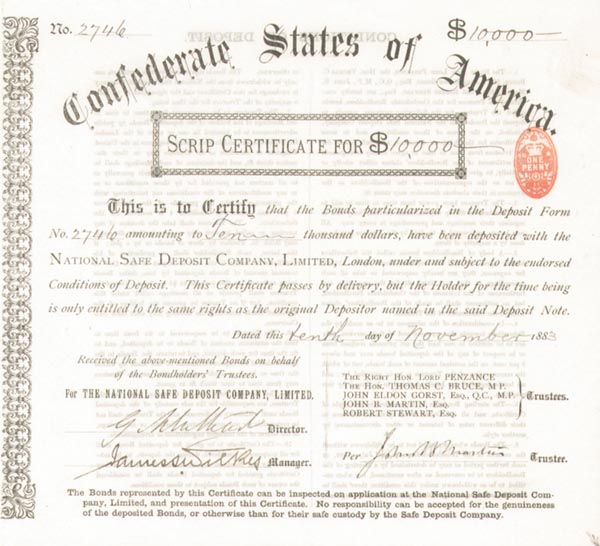 No. 2746
$10,000
Confederate States of America.
SCRIP CERTIFICATE FOR $10,000
ONE PENNY
This is to Certify that the Bonds particularized in the Deposit Form
No. 2746 amounting to Ten thousand dollars, have been deposited with the
NATIONAL SAFE DEPOSIT COMPANY, LIMITED, London, under and subject to the endorsed
Conditions of Deposit. This Certificate passes by delivery, but the Holder for the time being
is only entitled to the same rights as the original Depositor named in the said Deposit Note.
Dated this tenth day of November 1883
Received the above-mentioned Bonds on behalf
of the Bondholders' Trustees.
For THE NATIONAL SAFE DEPOSIT COMPANY, LIMITED.
Director.
James Wilkes Manager.
THE RIGHT HON LORD PENZANCE
THE HON. THOMAS C. BRUCE, M P.
JOHN ELDON GORST, ESQ., Q.C., M.P.
JOHN B. MARTIN, ESQ.
ROBERT STEWART, ESQ.
Trustees.
Per John B Martin Trustee.
The Bonds represented by this Certificate can be inspected on application at the National Safe Deposit Com-
pany, Limited, and presentation of this Certificate. No responsibility can be accepted for the genuineness
of the deposited Bonds, or otherwise than for their safe custody by the Safe Deposit Company.